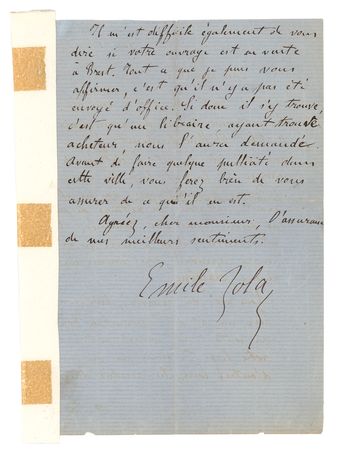 Il m'est difficile également de vous
dire si votre ouvrage est en vente
à Brest. Tout ce que je puis vous
affirmer, c'est qu'il n'y a pas été
envoyé d'office. Si donc il s'y trouve,
c'est qu'un libraire, ayant trouvé
acheteur, nous l'aura demandé.
Avant de faire quelque publicité dans
cette ville, vous ferez bien de vous
assurer de ce qu'il en est.
Agréez, cher monsieur, l'assurance
de mes meilleurs sentiments.
Emile Zola